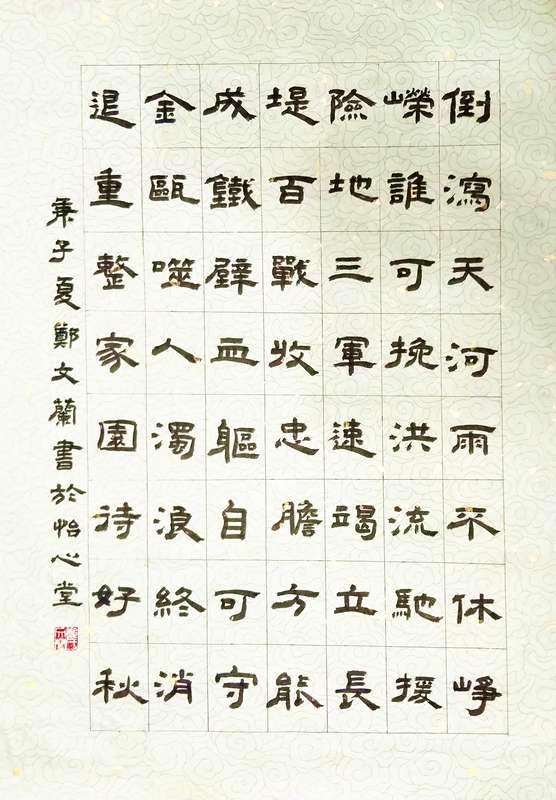 倒瀉天河雨不休崢
嶸誰可挽洪流馳援
險地三軍速竭立長
堤百戰收忠膽方能
成鐵壁血軀自可守
金甌噬人濁浪終消
退重整家園待好秋
子夏鄭文蘭書於怡心堂